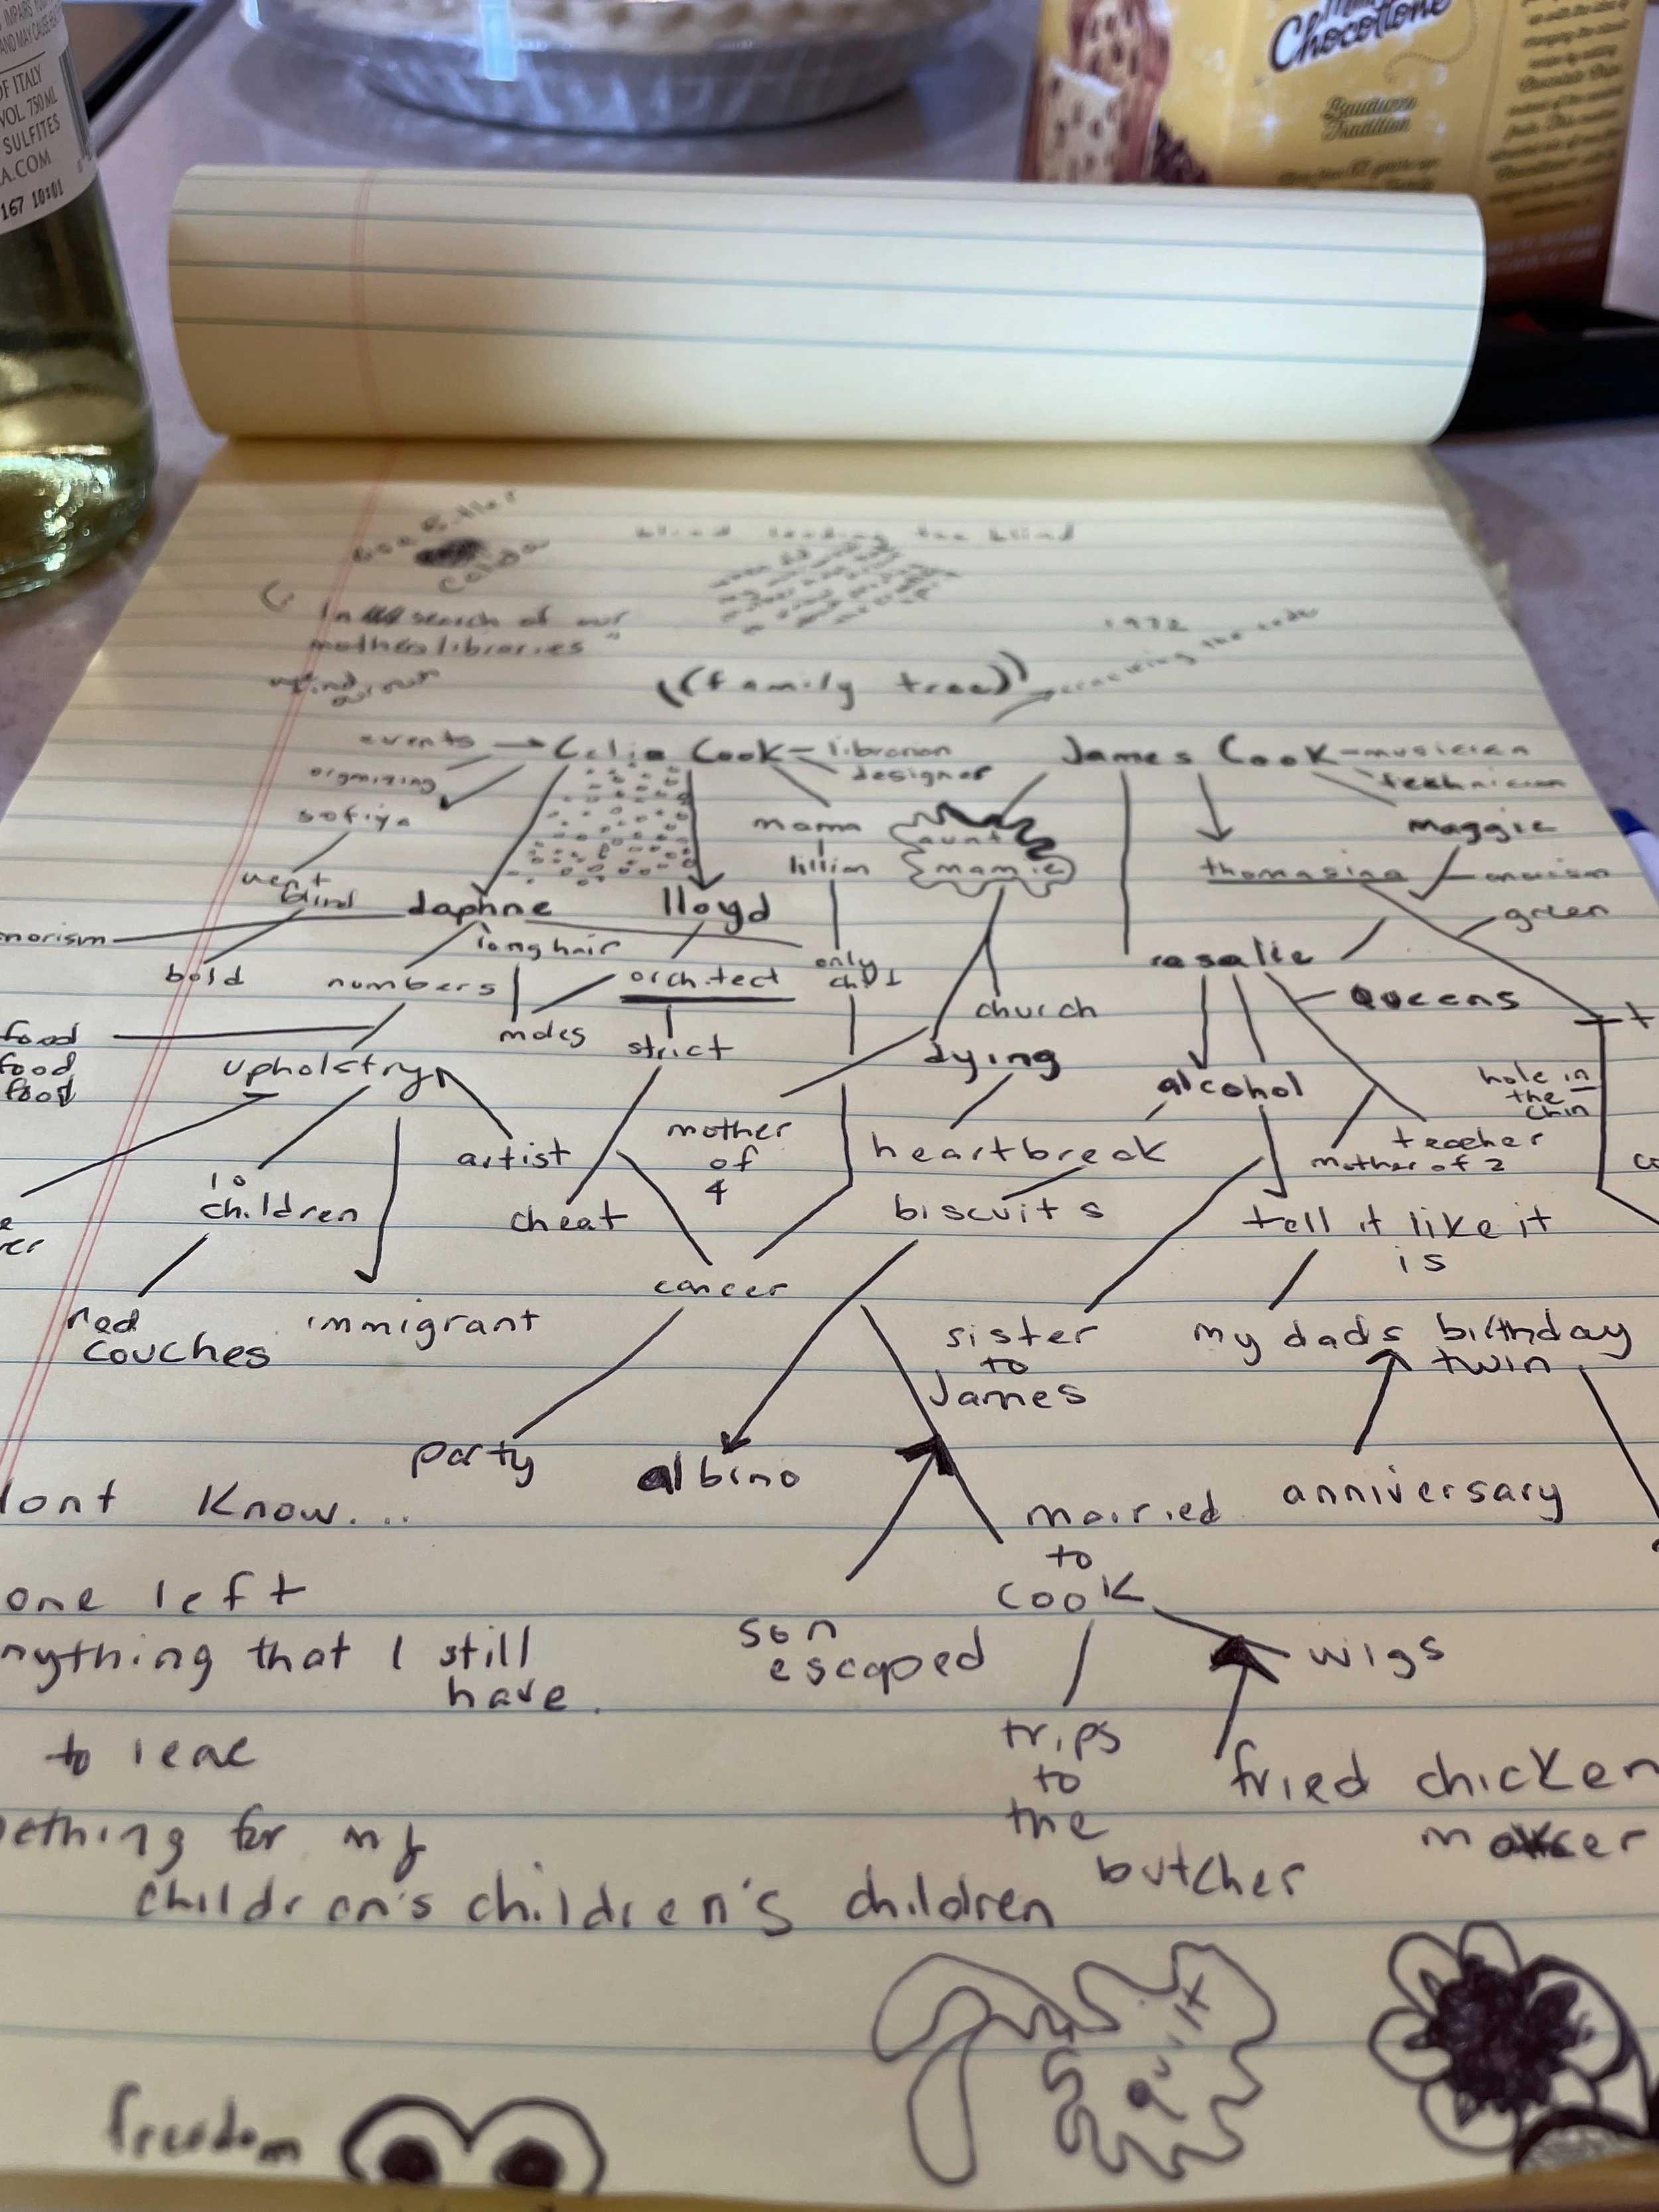 OF ITALY
VOL. 750 ML
SULFITES
A.COM
167 10:01
Chocottone
Bauducco
Tradition
blind leading the blind
In search of our
mothers libraries"
1972
cracking the code
((family tree))
events
Celia Cook
librarian
James Cook
musician
orgnizing
designer
technician
sofiya
mama
aunt
maggie
lillian
mamie
thomasina
went
blind
daphne
lloyd
green
norism
longhair
only
child
rosalie
bold
numbers
architect
church
Queens
food
moles
strict
dying
food
upholstry
alcohol
hole in
food
the
chin
artist
mother
heartbreak
teacher
of
mother of 2
4
10
children
cheat
biscuits
tell it like it
is
cancer
red
immigrant
sister
my dads birthday
couches
to
twin
James
party
albino
anniversary
dont know....
married
to
one left
cook
son
nything that I still
escaped
wigs
have.
to leae
trips
to
fried chicken
ething for my
the
maker
butcher
children's children's children
quilt
freedom